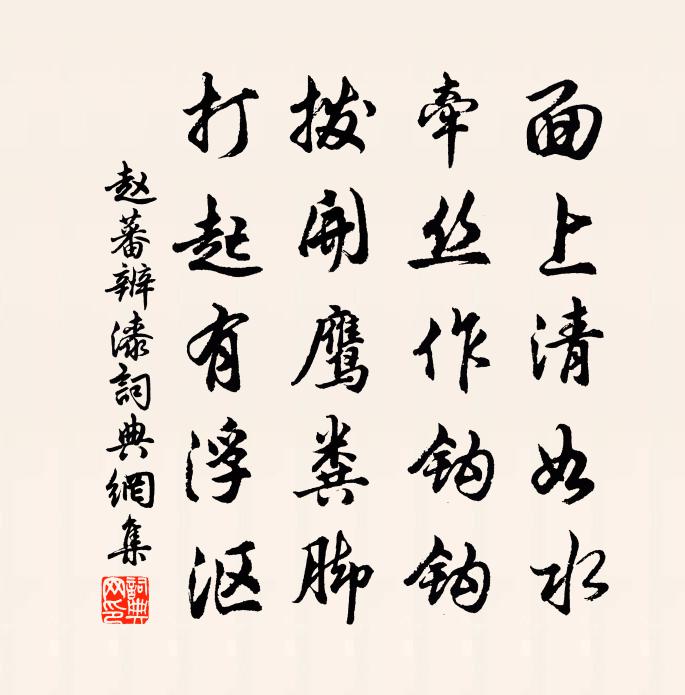 面上清如水
牵丝作钩钩
拨開鹰粪脚
打起有浮沤
赵蕃辨漆詞典網集
詞典網印